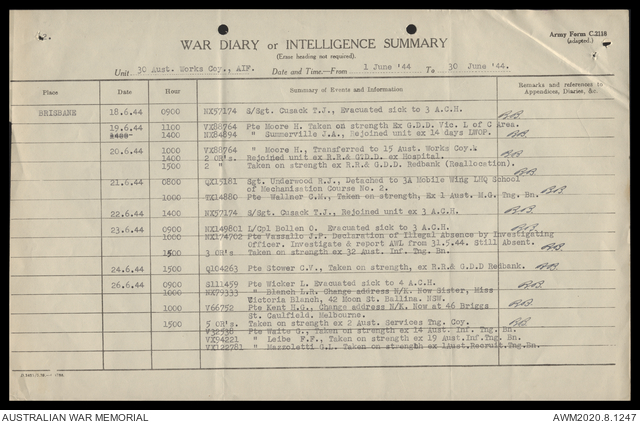 Army Form C.2118
(adapted.)
WAR DIARY or INTELLIGENCE SUMMARY
(Erase heading not required).
Unit 30 Aust. Works Coy., AIF. Date and Time:—From 1 June '44 To 30 June '44.
Place Date Hour Summary of Events and Information Remarks and references to Appendices, Diaries, &c.
BRISBANE 18.6.44 0900 NX57174 S/Sgt. Cusack T.J., Evacuated sick to 3 A.C.H.
19.6.44 1100 VX88764 Pte Moore H. Taken on strength Ex G.D.D. Vic. L of C Area.
1400 NX84894 " Summerville J.A., Rejoined unit ex 14 days LWOP.
20.6.44 1000 VX88764 " Moore H., Transferred to 15 Aust. Works Coy.
1400 2 OR's. Rejoined unit ex R.R.& G.D.D. ex Hospital.
1500 2 " Taken on strength ex R.R.& G.D.D. Redbank (Reallocation).
21.6.44 0800 QX15181 Sgt. Underwood R.J., Detached to 3A Mobile Wing LHQ School
of Mechanisation Course No. 2.
1000 TX14880 Pte Wellner C.M., Taken on strength, Ex 1 Aust. M.G. Tng. Bn.
22.6.44 1400 NX57174 S/Sgt. Cusack T.J., Rejoined unit ex 3 A.C.H.
23.6.44 0900 NX149801 L/Cpl Bollen O. Evacuated sick to 3 A.C.H.
1000 NX174702 Pte Vassallo J.P. Declaration of Illegal Absence by Investigating
Officer. Investigate & report AWL from 31.5.44. Still Absent.
1500 3 OR's Taken on strength ex 32 Aust. Inf. Tng. Bn.
24.6.44 1500 Q104263 Pte Stower C.V., Taken on strength, ex R.R.& G.D.D Redbank.
26.6.44 0900 S111459 Pte Wicker L. Evacuated sick to 4 A.C.H.
1000 NX79333 " Blanch L.R. Change address N/K. Now Sister, Miss
Victoria Blanch, 42 Moon St. Ballina. NSW.
1000 V66752 Pte Kent H.G., Change address N/K. Now at 46 Briggs
St. Caulfield. Melbourne.
1500 5 OR's. Taken on strength ex 2 Aust. Services Tng. Coy.
V32538 Pte Waite G., Taken on strength ex 14 Aust. Inf. Tng. Bn.
VX94221 " Leibe F.F., Taken on strength ex 19 Aust.Inf.Tng. Bn.
VX122781 " Mazzoletti G.L. Taken on strength ex 1Aust.Recruit.Tng.Bn.
AUSTRALIAN WAR MEMORIAL AWM2020.8.1247